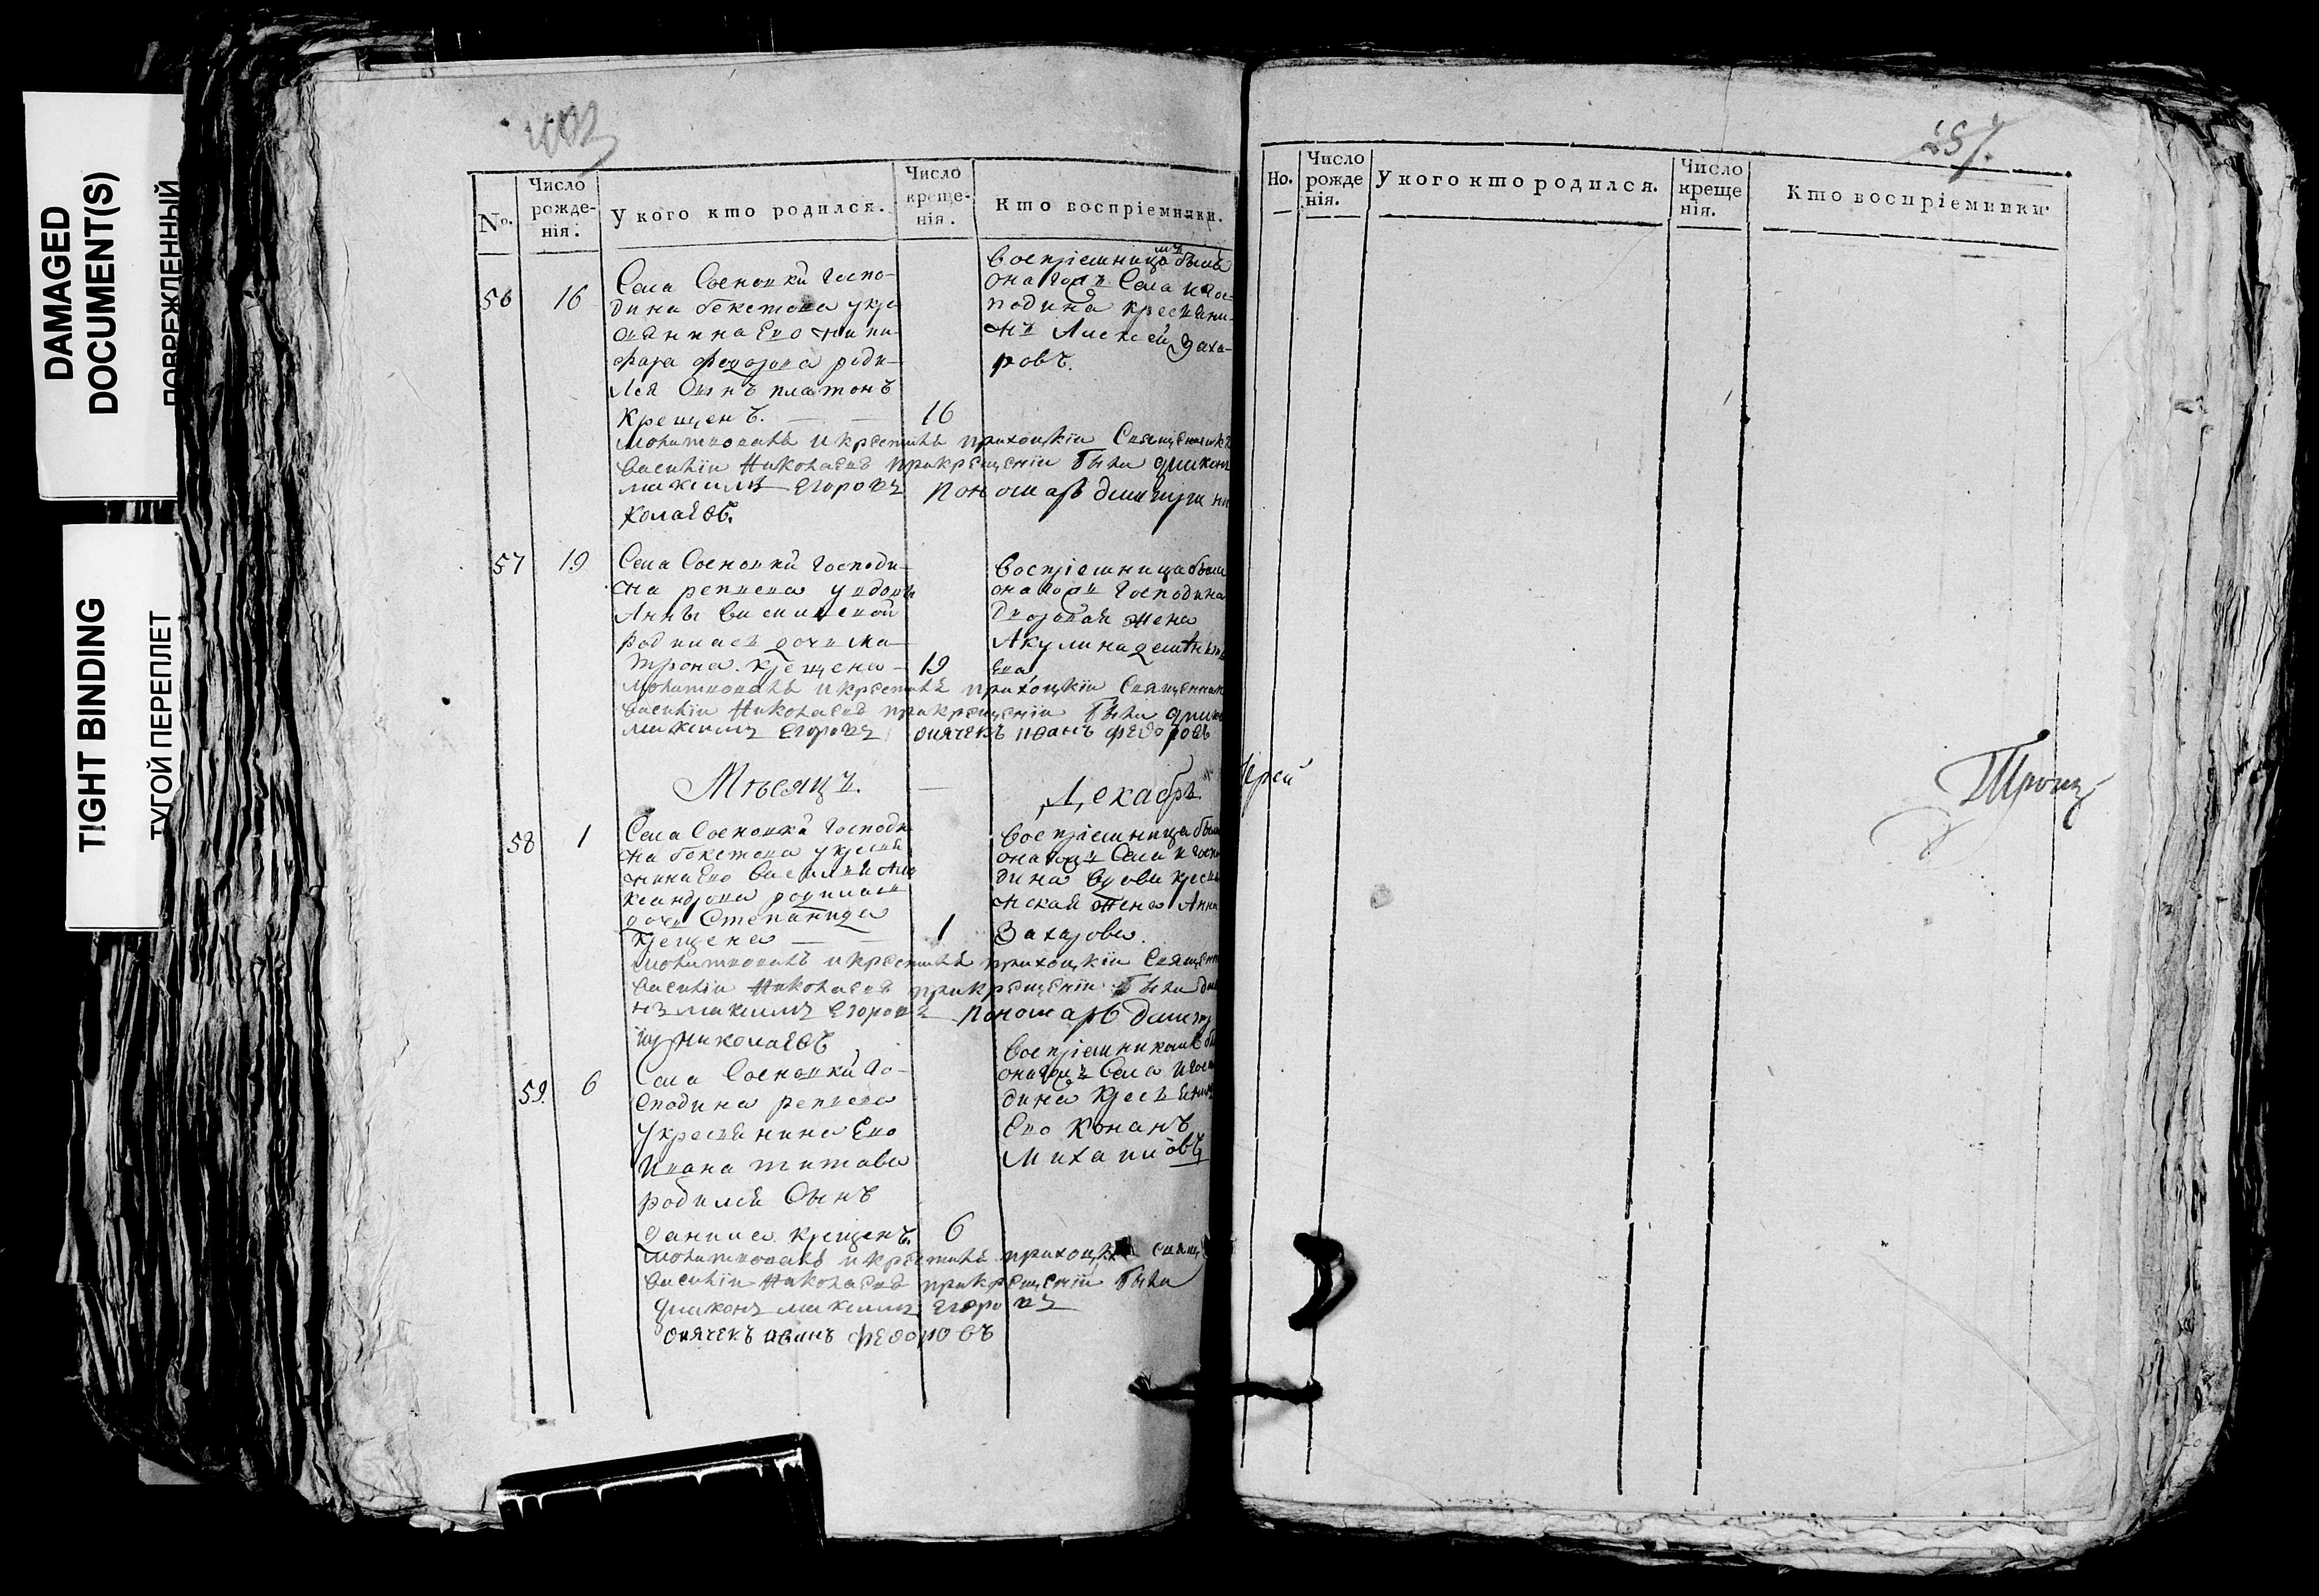 DAMAGED
DOCUMENT(S)
ПОВРЕЖДЕННЫЙ
TIGHT BINDING
ТУГОЙ ПЕРЕПЛЕТ
No.
Число
рожде-
нія.
У кого кто родился.
Число
креще-
нія.
Кто воспріемники.
56
16
Села Сосновки Госпо-
дина бекетова укре
стьянина Ево ники
фара федорова роди-
лся Сынъ платонъ
крещенъ. 16
воспріемникомъ былъ
оногожъ Села игос-
подина крестьяни-
нъ Алексей Заха-
ровъ.
молитвовалъ икрестилъ приходскіи Священникъ
Василіи Николаевъ прикрещеніи были дияконъ
максимъ Егоровъ пономарь димитри ни
колаевъ.
57
19
Села Сосновки Господи-
на репьева увдовы
Анны Василиевой
родилась дочь Ма-
трона крещена - 19
воспріемница была
оногожъ Господина
дворовая жена
Акулина
ева
молитвовалъ икрестилъ приходскіи Священник
Василіи Николаевъ прикрещеніи были
максимъ Егоровъ диячекъ иванъ федоровъ
Мѣсяцъ. — Декабрь
58
1
Села Сосновки Господи
на бекетова укрестья
нина Ево Василия Але
ксандрова родилась
дочь Степанида
крещена 1
воспріемница была
оногожъ Села и Госпо
дина крестья
нская жена Анна
Захарова.
молитвовалъ икрестилъ приходскіи Священ
Василіи Николаевъ прикрещеніи были
нъ максимъ Егоровъ пономарь димит
николаевъ
59.
6
Села Сосновки Го-
сподина репьева
укрестьянина Ево
Ивана титова
родился Сынъ
данила крещенъ. 6
воспріемникомъ
оногожъ Села и Госпо
дина крестьянин
Ево Конанъ
Михаиловъ
молитвовалъ икрестилъ приходск свящ
Василіи Николаевъ прикрещеніи были
дияконъ максимъ Егоровъ
диячекъ иванъ федоровъ
Но.
Число
рожде
нія.
У кого кто родился.
Число
креще
нія.
Кто воспріемники.
Іерей